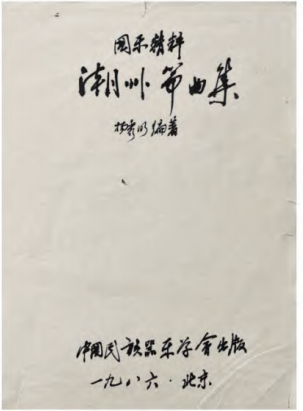 国乐精粹
潮州筝曲集
杨秀明编著
中国民族器乐学会出版
一九八六·北京